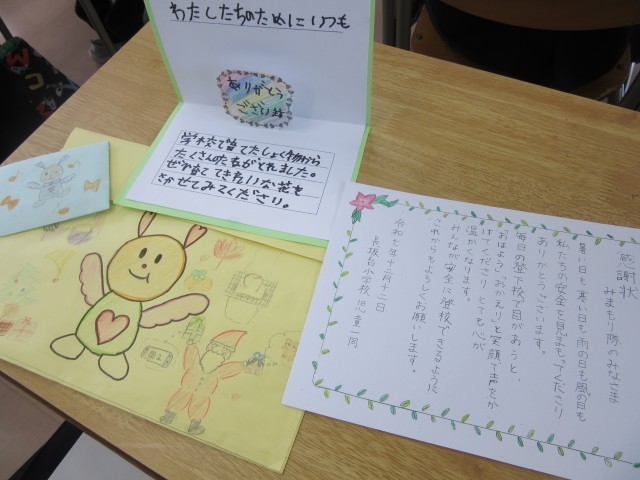 わたしたちのためにいつも
ありがとう
ございます
学校で育てたしょく物から
たくさんのたねがとれました。
ぜひ育ててきれいな花を
さかせてみてください。
感謝状
みまもり隊のみなさま
暑い日も寒い日も雨の日も風の日も
私たちの安全を見まもってくださり
ありがとうございます。
毎日の登下校で目があうと、
「おはよう」「おかえり」と笑顔で声をか
けてくださりとても心が
温かくなります。
みんなが安全に登校できるように
これからもよろしくお願いします。
令和七年十二月十二日
長坂台小学校 児童一同